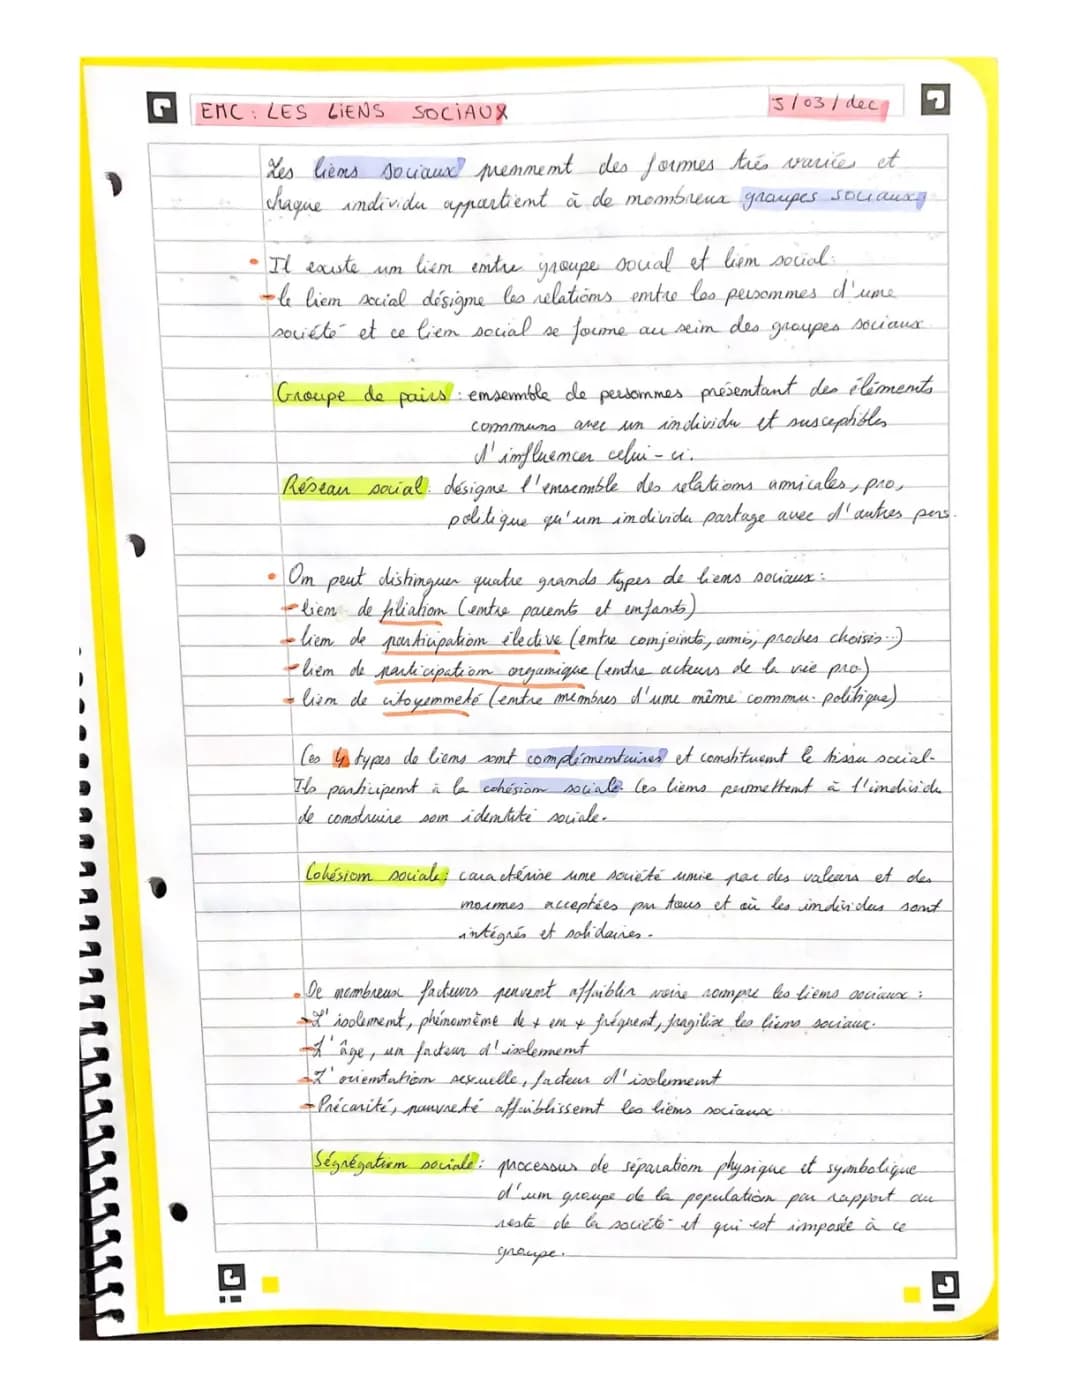 EMC : LES LIENS SOCIAUX
5/03/dec
Les liens sociaux prennent des formes très variées et
chaque individu appartient à de nombreux groupes sociaux
• Il existe un lien entre groupe social et lien social :
- le lien social désigne les relations entre les personnes d'une
société et ce lien social se forme au sein des groupes sociaux
Groupe de pairs : ensemble de personnes présentant des éléments
communs avec un individu et susceptibles
d'influencer celui-ci.
Réseau social : désigne l'ensemble des relations amicales, pro,
politique qu'un individu partage avec d'autres pers.
• On peut distinguer quatre grands types de liens sociaux :
- lien de filiation (entre parents et enfants)
- lien de participation élective (entre conjoints, amis, proches choisis..)
- lien de participation organique (entre acteurs de la vie pro)
- lien de citoyenneté (entre membres d'une même commu. politique)
Ces 4 types de liens sont complémentaires et constituent le tissu social.
Ils participent à la cohésion sociale. Ces liens permettent à l'individu
de construire son identité sociale.
Cohésion sociale : caractérise une société unie par des valeurs et des
normes acceptées par tous et où les individus sont
intégrés et solidaires.
• De nombreux facteurs peuvent affaiblir voire rompre les liens sociaux :
- L'isolement, phénomène de + en + fréquent, fragilise les liens sociaux.
- L'âge, un facteur d'isolement
- L'orientation sexuelle, facteur d'isolement
- Précarité, pauvreté affaiblissent les liens sociaux
Ségrégation sociale : processus de séparation physique et symbolique
d'un groupe de la population par rapport au
reste de la société et qui est imposée à ce
groupe.